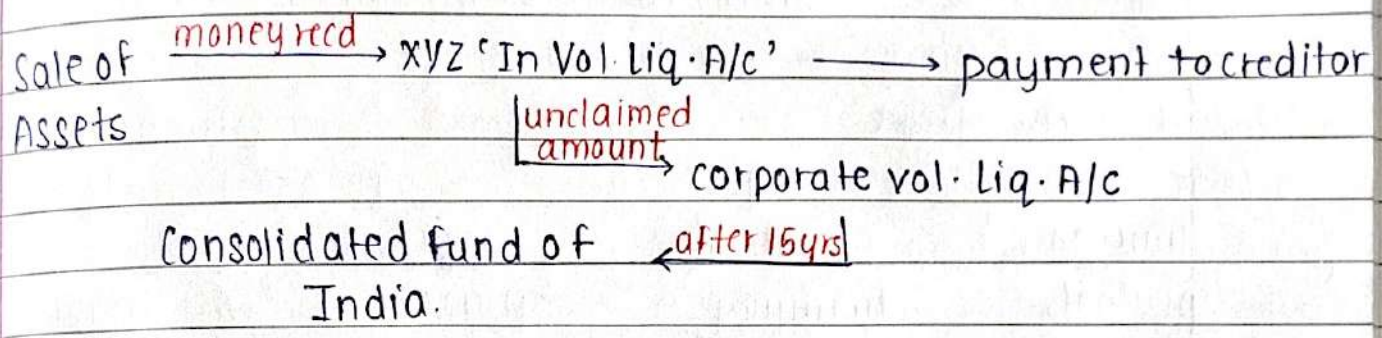 Sale of money recd → XYZ 'In Vol. Liq. A/c' → payment to creditor
Assets
unclaimed
amount
corporate vol. Liq. A/c
Consolidated Fund of after 15 yrs
India.